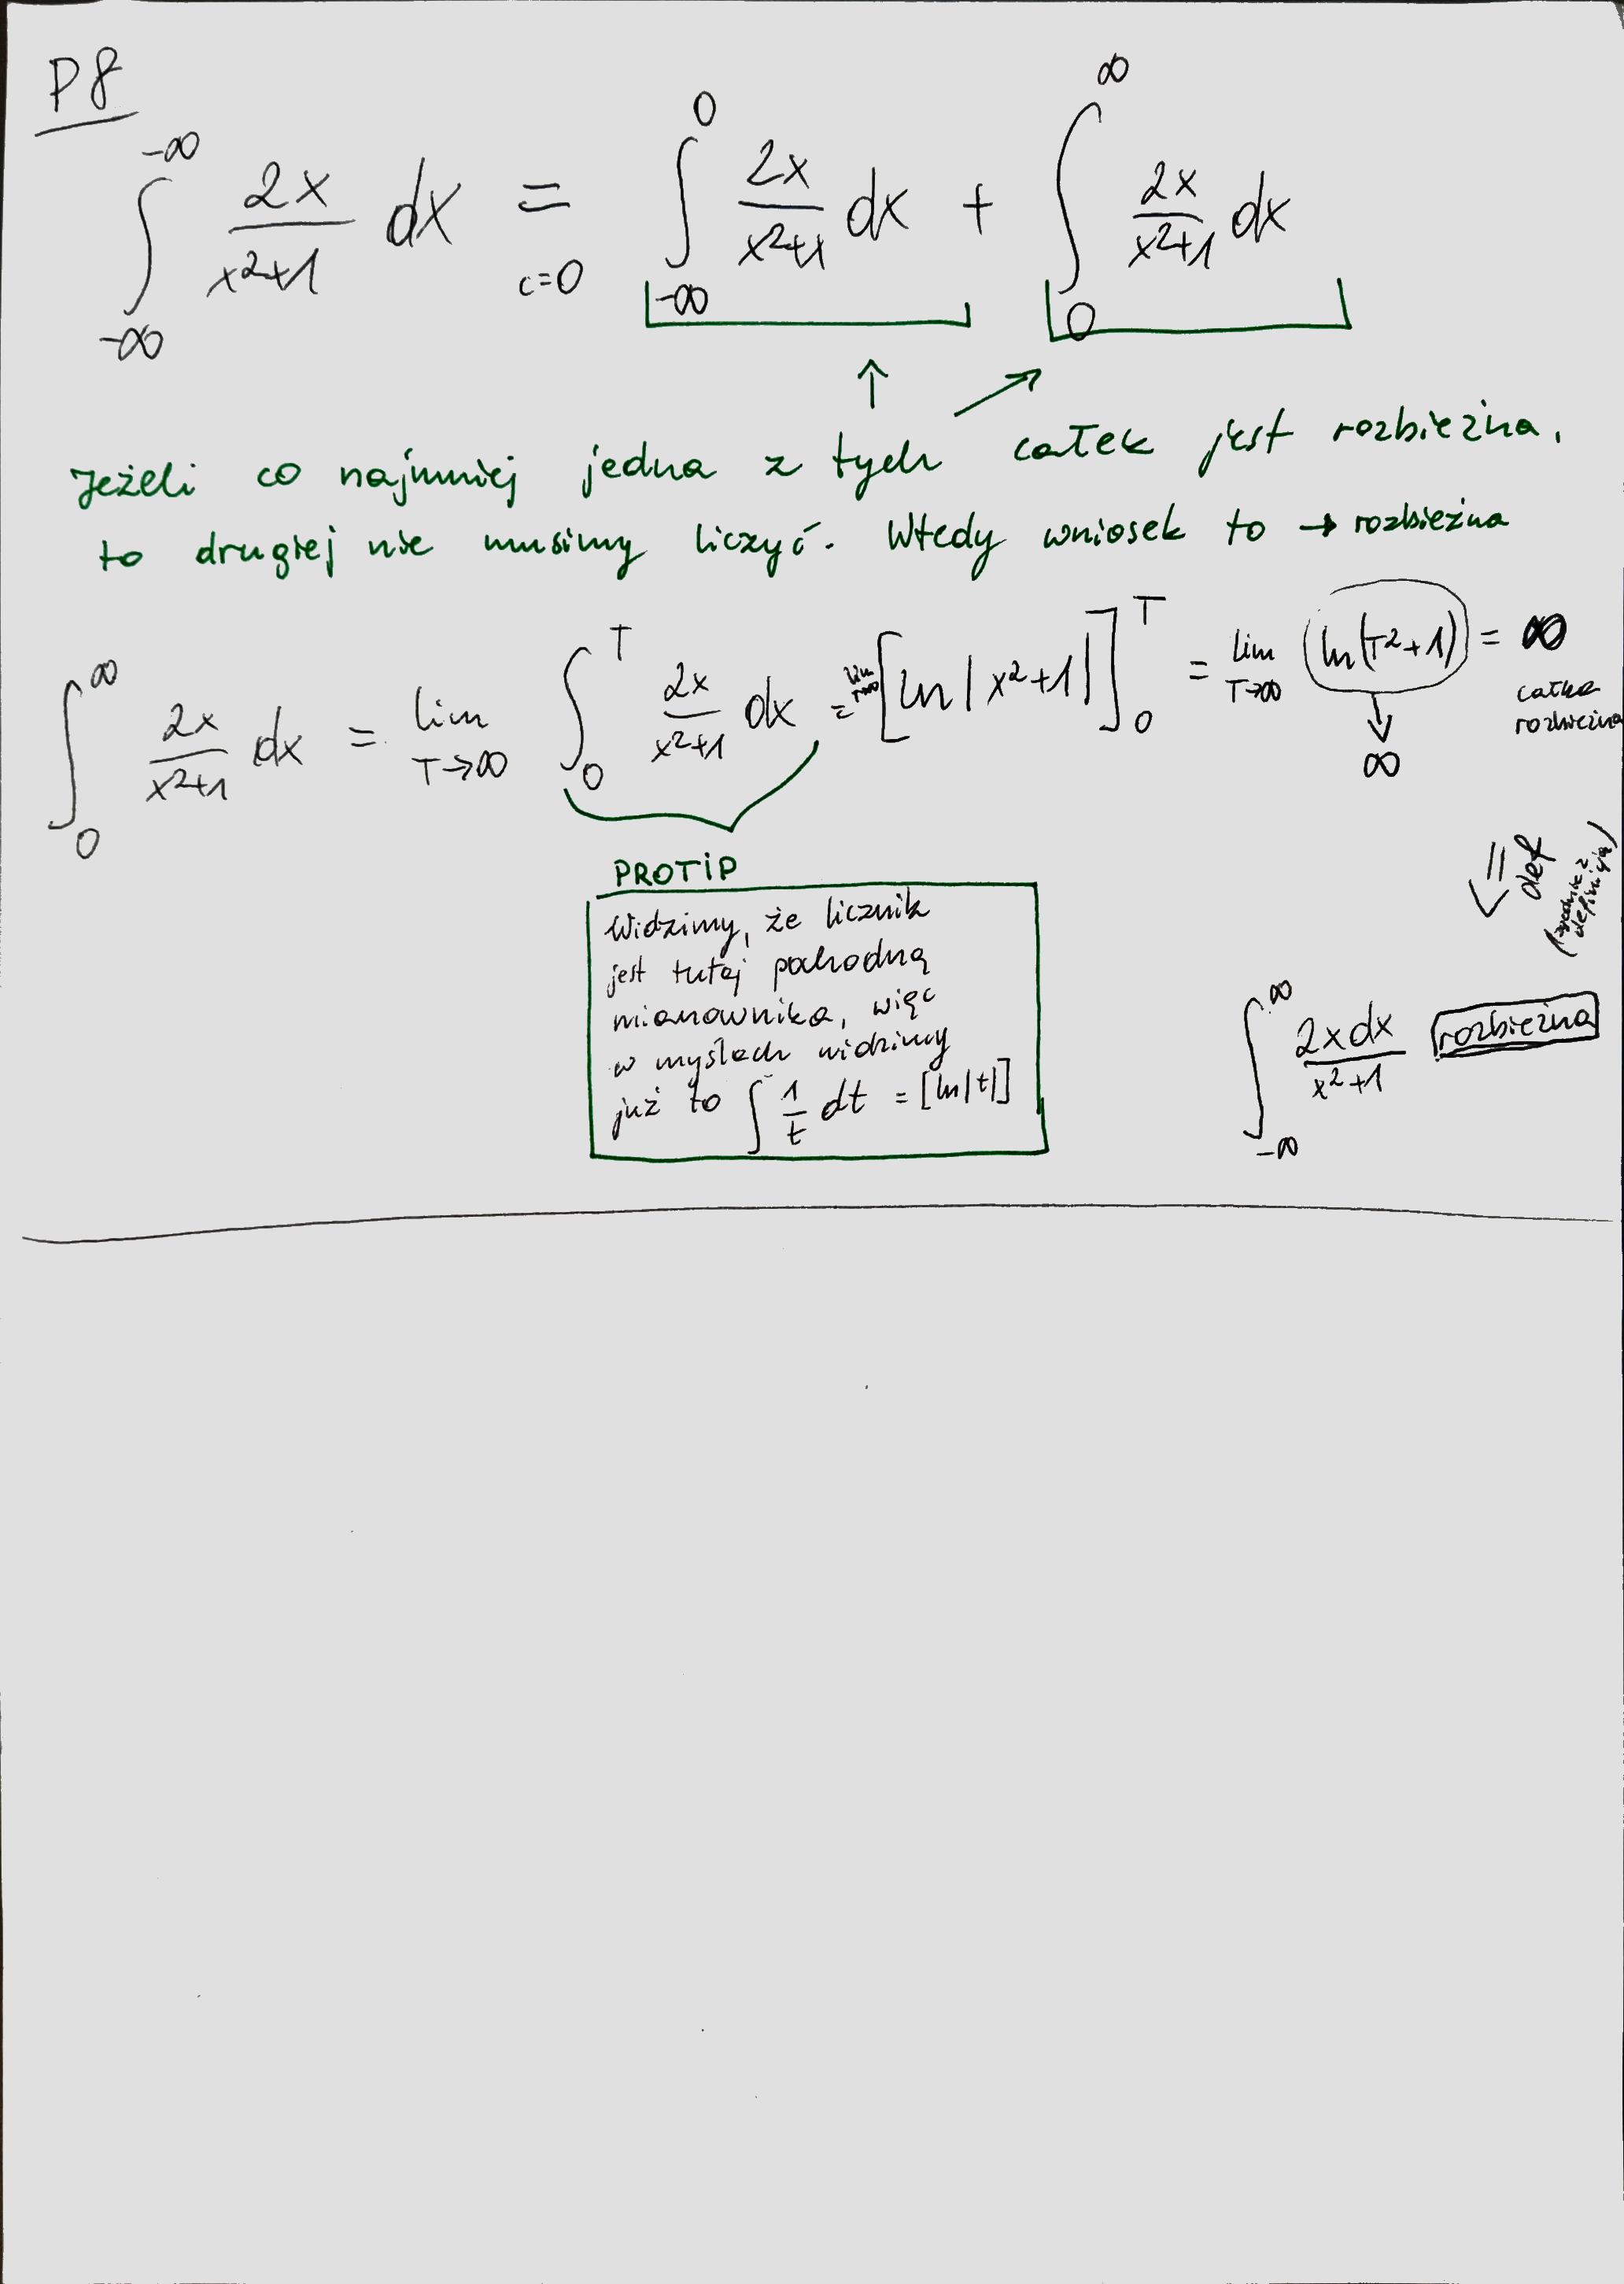 P8
∫_{-∞}^{-∞} 2x/(x²+1) dx =_{c=0} ∫_{-∞}^{0} 2x/(x²+1) dx + ∫_{0}^{∞} 2x/(x²+1) dx
↑ ↗
Jeżeli co najmniej jedna z tych całek jest rozbieżna,
to drugiej nie musimy liczyć. Wtedy wniosek to → rozbieżna
∫_{0}^{∞} 2x/(x²+1) dx = lim_{T→∞} ∫_{0}^{T} 2x/(x²+1) dx = lim_{T→∞} [ln|x²+1|]_{0}^{T} = lim_{T→∞} (ln(T²+1)) = ∞
↓
∞
całka
rozbieżna
PROTIP
Widzimy, że licznik
jest tutaj pochodną
mianownika, więc
w myślach widzimy
już to ∫ 1/t dt = [ln|t|]
⇓ def
(zgodnie z
definicją)
∫_{-∞}^{∞} 2x dx/(x²+1) rozbieżna